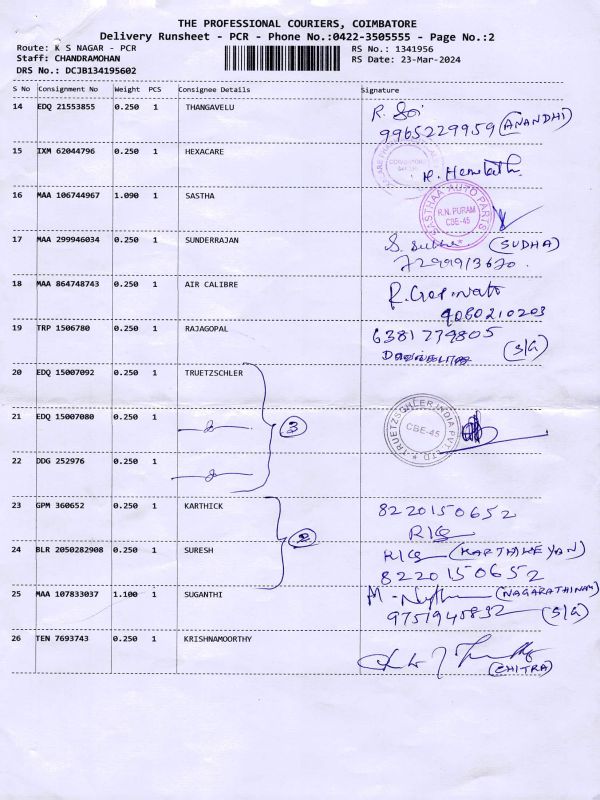 THE PROFESSIONAL COURIERS, COIMBATORE
Delivery Runsheet - PCR - Phone No.:0422-3505555 - Page No.:2
Route: K S NAGAR - PCR RS No.: 1341956
Staff: CHANDRAMOHAN RS Date: 23-Mar-2024
DRS No.: DCJB134195602
S No Consignment No Weight PCS Consignee Details Signature
14 EDQ 21553855 0.250 1 THANGAVELU
9965229959 (ANANDHI)
15 IXM 62044796 0.250 1 HEXACARE
16 MAA 106744967 1.090 1 SASTHA
SASTHAA AUTO PARTS
R.N. PURAM
CBE-45
17 MAA 299946034 0.250 1 SUNDERRAJAN
(SUDHA)
7299913670.
18 MAA 864748743 0.250 1 AIR CALIBRE
R. Gopinath
9080210203
19 TRP 1506780 0.250 1 RAJAGOPAL
6381779805
(S/G)
20 EDQ 15007092 0.250 1 TRUETZSCHLER
21 EDQ 15007080 0.250 1
3
TRUETZSCHLER INDIA PVT. LTD
CBE-45
22 DDG 252976 0.250 1
23 GPM 360652 0.250 1 KARTHICK
8220150652
24 BLR 2050282908 0.250 1 SURESH
2
(KARTHIKEYAN)
8220150652
25 MAA 107833037 1.100 1 SUGANTHI
(NAGARATHINAM)
9751945832 (S/G)
26 TEN 7693743 0.250 1 KRISHNAMOORTHY
(CHITRA)